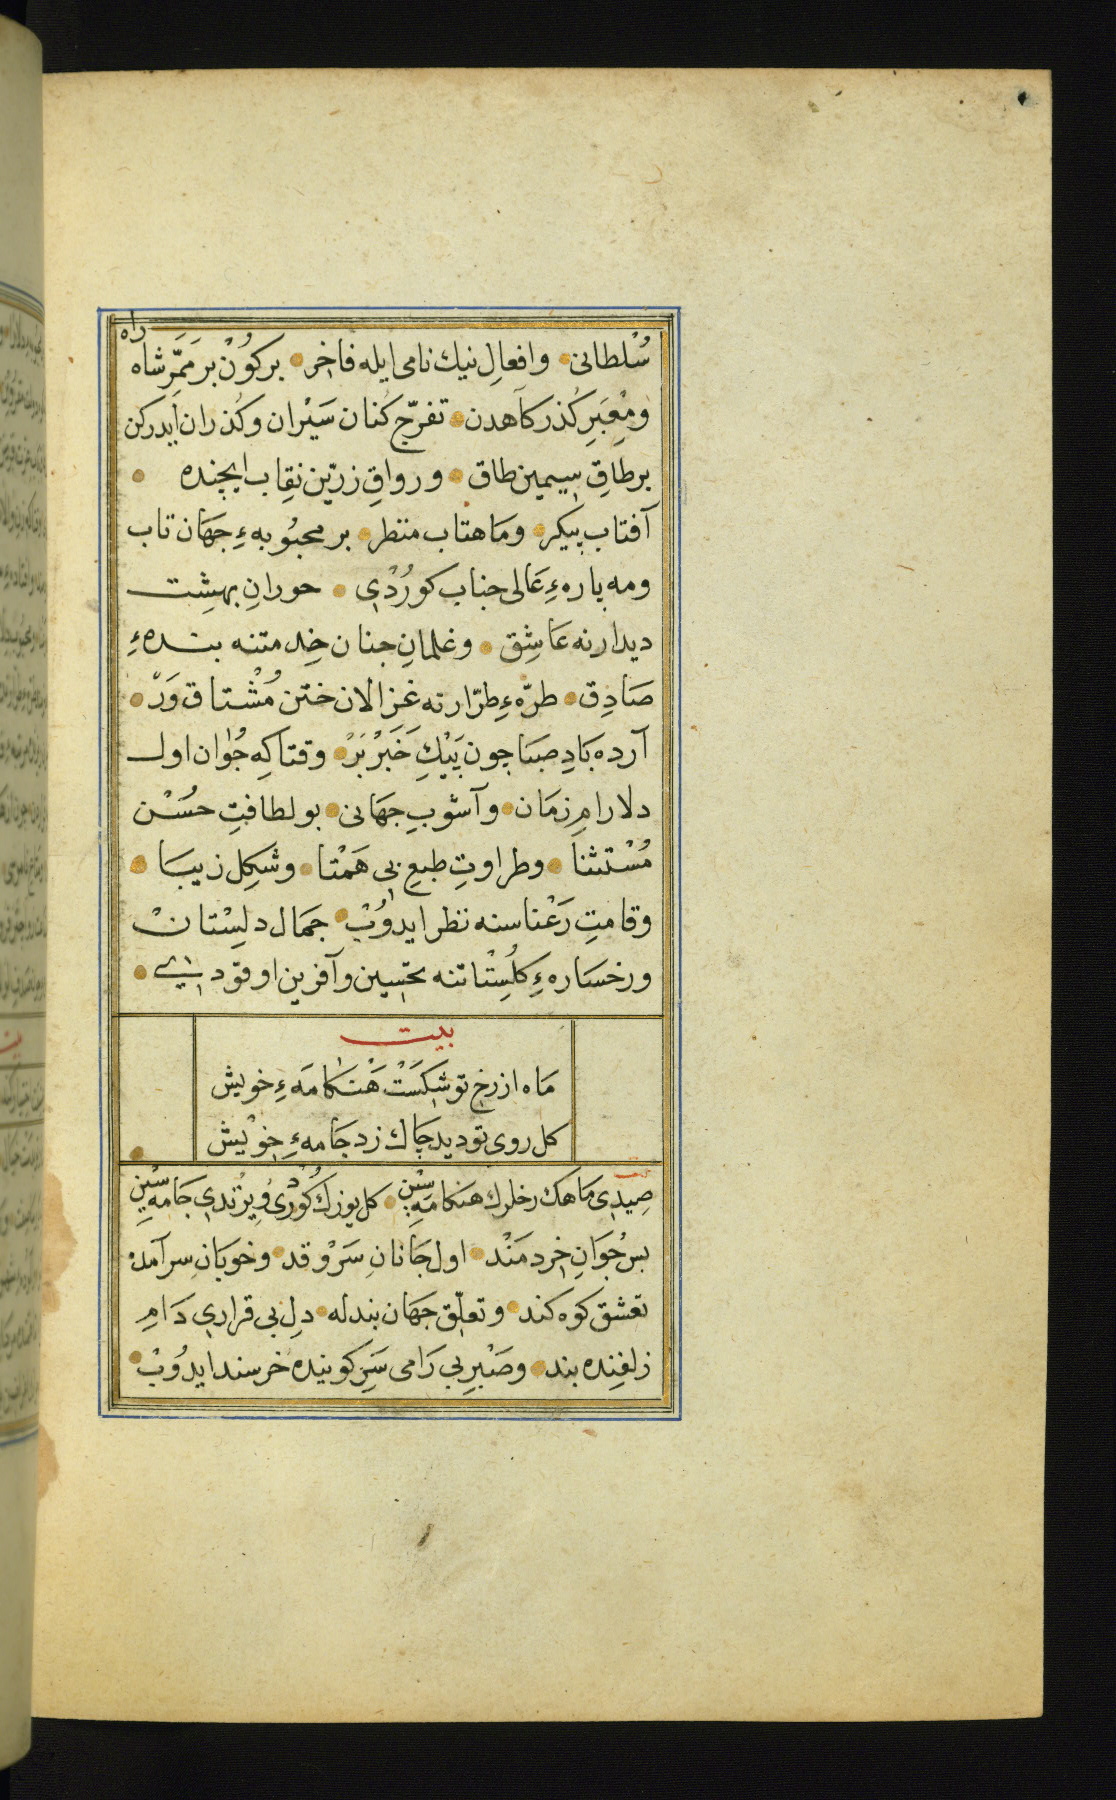 سُلطانی وافعالِ نیك نامی ایله فاخر برکُوْنْ بر مَمَرِّ شاه راه
ومِعْبَرِ کُذرکآهدن تفرّج کُنان سَیْران وکُذران ایدرکن
بر طاقِ سیمین طاق ورواقِ زرّین نِقاب ایچنده
آفتاب پیکر ومَاهتاب منظر بر محبُوبهءِ جهَان تاب
ومه پارهءِ عَالی جناب کورُدْی حورانِ بهشِت
دیدارنه عَاشِق وغلمانِ جنان خِدمتنه بندهءِ
صَادِق طرّهءِ طرّارنه غزالان ختن مُشْتاق وَرْ
آرده بَادِ صبَا چون پَیْكِ خَبَرْ بَرْ وقتاکِه جُوَان اول
دلارامِ زمَان وآشوبِ جهَانی بو لطافتِ حسُنْ
مُسْتثنا وطراوتِ طبعِ بی هَمْتا وشکِل زیبَا
وقامتِ رَعْناسنه نظر ایدوُبْ جمَال دلِسْتانْ
ورخسَارهءِ کلُسِتْاننه تحسین وآفرین اوقودیی
بیت
مَاه از رخ تو شکَسَتْ هَنْکامَهءِ خویش
کل روی تو دید چَاك زد جَامهءِ خوْیش
صِیدی مَاهك رخلرك هنکامهسِنْی کل یوزك کُورْدی وُیِرْتدی جَامهسِنْی
بس جُوَانِ خردمَنْد اول جَانانِ سَرْوقد وخوبَانِ سرآمده
تعشق کوه کند وتعلّق جهَان بندله دلِ بی قراری دَامِ
زلفنِده بند وصَبْرِ بی رَامی سَرِ کوینده خرسند ایدُوُبْ